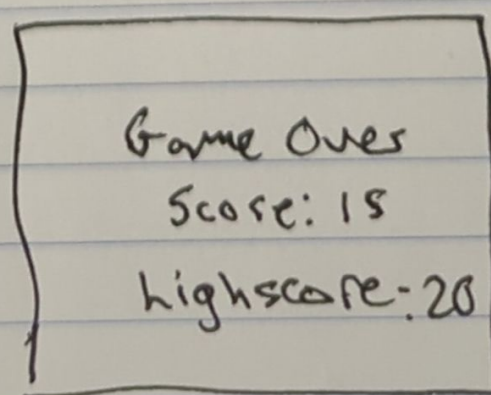 Game Over
Score: 15
highscore: 20